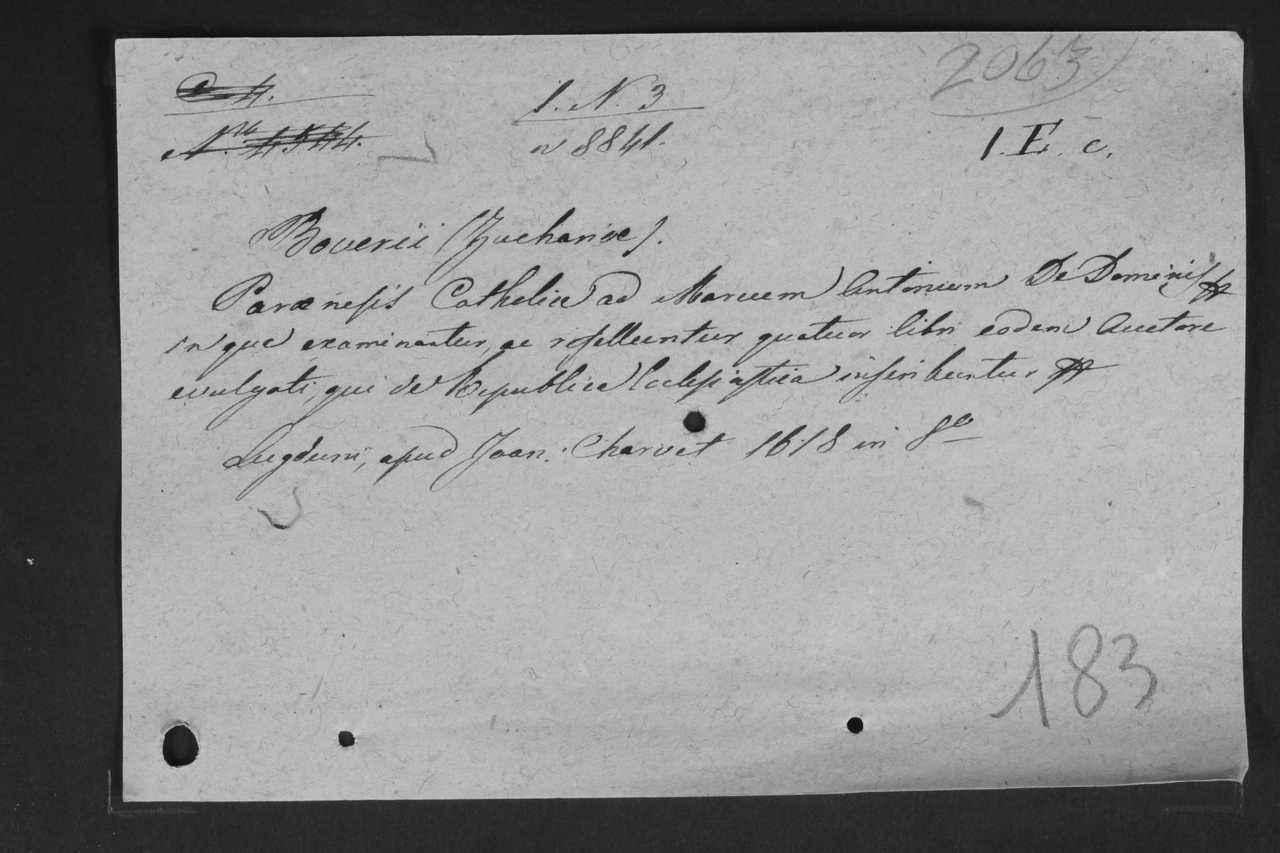 2063
C 4.
1. N. 3
N.ro 4544.
n 8841.
1. E. c.
Boverii (Zachariae).
Paraenesis Catholica ad Marcum Antonium De Dominis
in qua examinantur, ac refelluntur quatuor libri eodem Auctore
evulgati, qui de Republica Ecclesiastica inscribuntur
Lugduni, apud Joan. Charvet 1618 in 8o
183